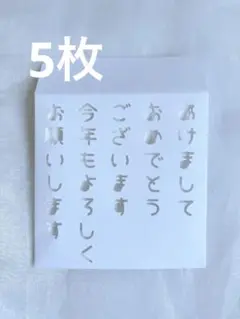 5枚
あけまして
おめでとう
ございます
今年もよろしく
お願いします